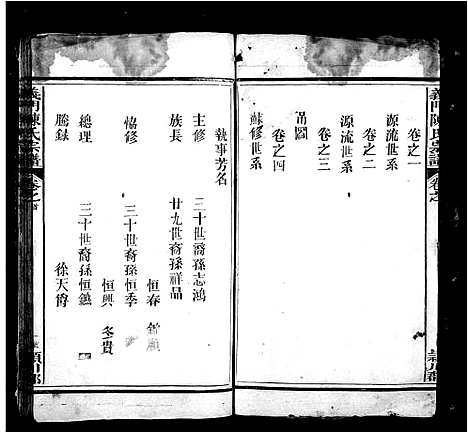 義門陳氏宗譜
卷之一
源流世系
卷之二
源流世系
卷之三
吊圖
卷之四
蘇修世系
執事芳名
主修 三十世裔孫志鴻
族長 廿九世裔孫祥品
恒春
協修 三十世裔孫恒季
恒興 冬貴
總理 三十世裔孫恒鑣
謄錄 徐天爵
義門陳氏宗譜
卷之首
潁川郡